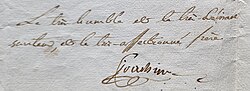 Le très humble et le très dévoué
serviteur, et le très-affectionné frère
Joachim